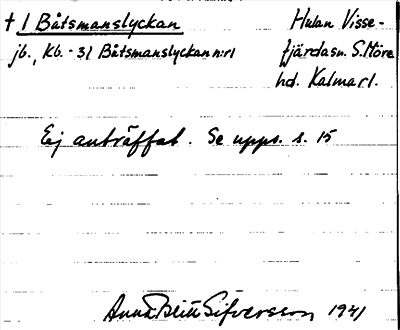 † 1 Båtsmanslyckan
Hulan Visse-
jb., Kb. - 31 Båtsmanslyckan n:r 1
fjärdasn. S. Möre
hd. Kalmar l.
Ej anträffat. Se upps. s. 15
Anna Britt Sifversson 1941